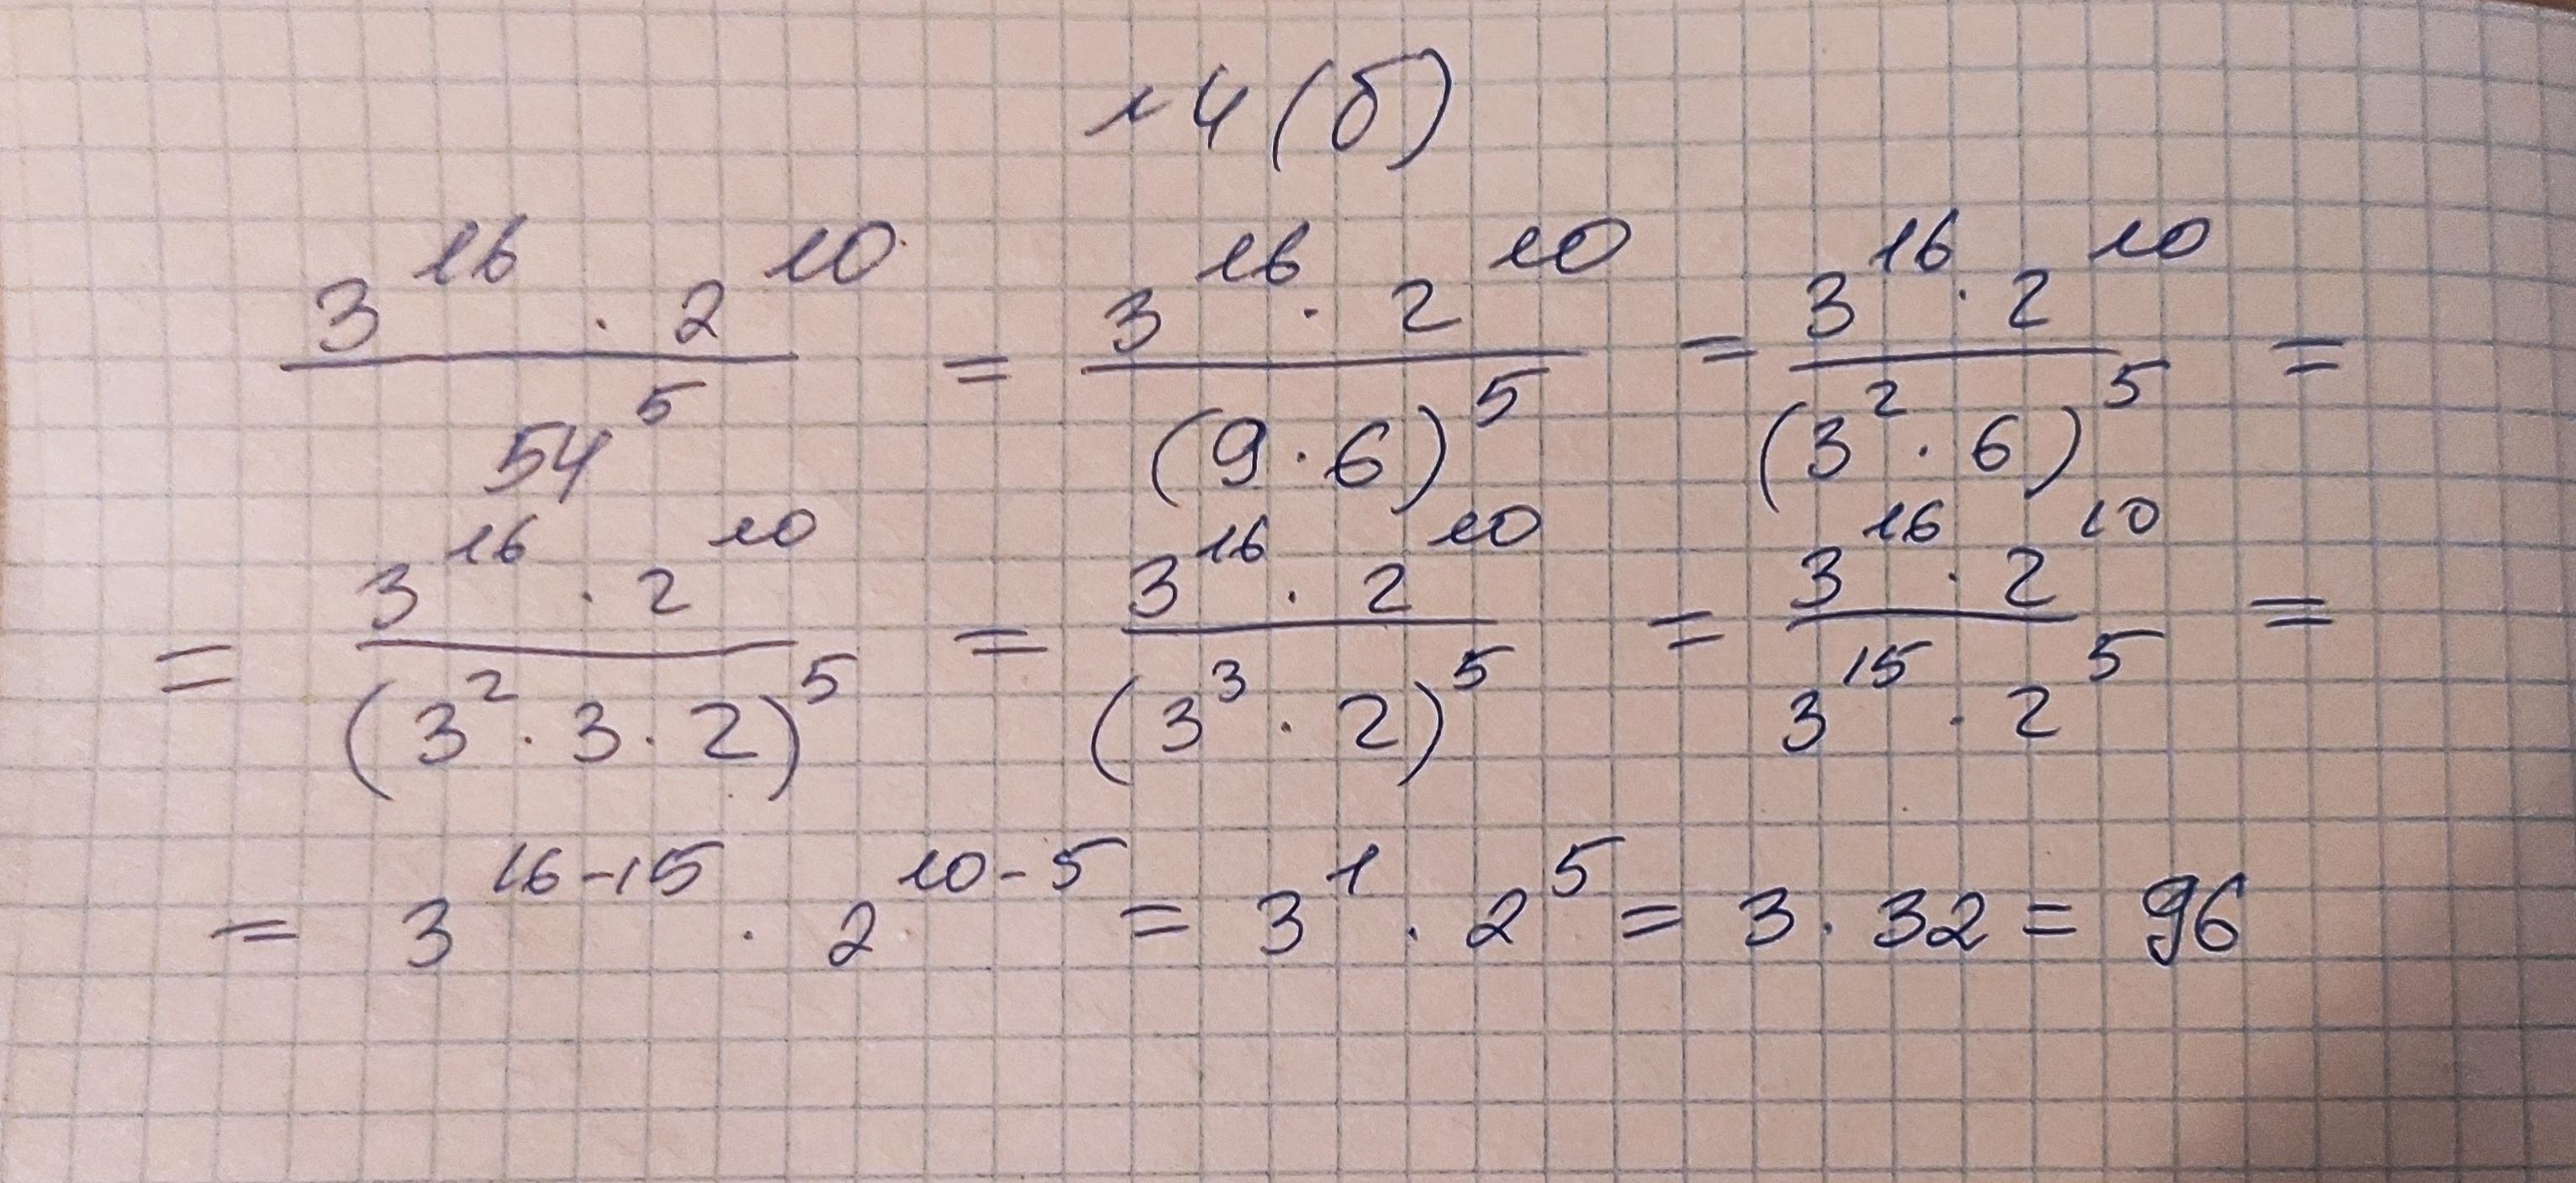 №4 (б)
\frac{3^{16} · 2^{10}}{54^5} = \frac{3^{16} · 2^{10}}{(9 · 6)^5} = \frac{3^{16} · 2^{10}}{(3^2 · 6)^5} =
= \frac{3^{16} · 2^{10}}{(3^2 · 3 · 2)^5} = \frac{3^{16} · 2^{10}}{(3^3 · 2)^5} = \frac{3^{16} · 2^{10}}{3^{15} · 2^5} =
= 3^{16-15} · 2^{10-5} = 3^1 · 2^5 = 3 · 32 = 96